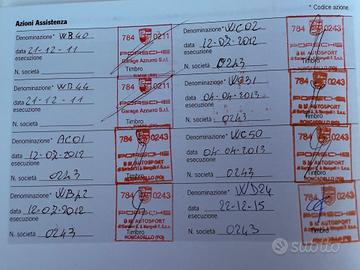 * Codice azione
Azioni Assistenza
Denominazione* WB40
data 21-12-11
esecuzione
N. società
784 0211
PORSCHE
Garage Azzurro S.r.l.
Timbro
Denominazione* WC02
data 12-07-2012
esecuzione
N. società 0243
784 0243
PORSCHE
B M AUTOSPORT
Timbro
Denominazione* WD44
data 21-12-11
esecuzione
N. società
784 0211
PORSCHE
Garage Azzurro S.r.l.
Timbro
Denominazione*
data 04-04-2013
esecuzione
N. società 0243
784 0243
PORSCHE
B M AUTOSPORT
RONCADELLO (FO)
Timbro
Denominazione* AC01
data 12-07-2012
esecuzione
N. società 0243
784 0243
PORSCHE
B M AUTOSPORT
RONCADELLO (FO)
Timbro
Denominazione* WC50
data 04-04-2013
esecuzione
N. società 0243
784 0243
PORSCHE
B M AUTOSPORT
RONCADELLO (FO)
Timbro
Denominazione*
data 12-07-2012
esecuzione
N. società 0243
784 0243
PORSCHE
B M AUTOSPORT
RONCADELLO (FO)
Timbro
Denominazione* WD24
data 22-12-15
esecuzione
N. società 0243
784 0243
PORSCHE
B M AUTOSPORT
RONCADELLO (FO)
Timbro
subito